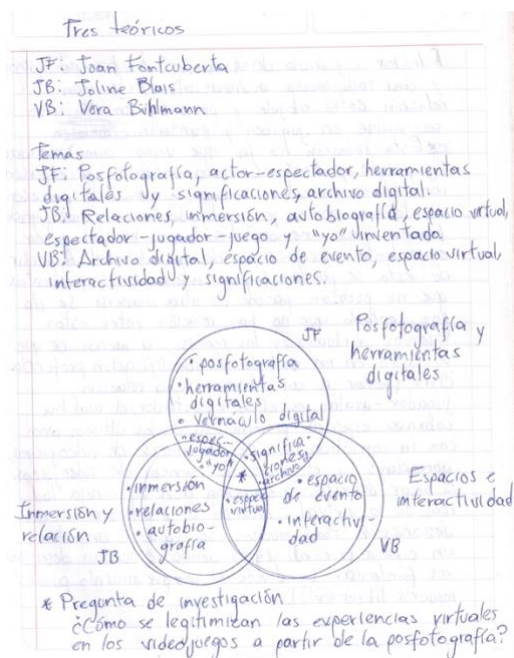 Tres teóricos
JF: Joan Fontcuberta
JB: Joline Blais
VB: Vera Bühlmann
Temas
JF: Posfotografía, actor-espectador, herramientas
digitales y significaciones, archivo digital.
JB: Relaciones, inmersión, autobiografía, espacio virtual,
espectador-jugador-juego y "yo" inventado
VB: Archivo digital, espacio de evento, espacio virtual,
interactividad y significaciones.
JF
Posfotografía y
herramientas
digitales
• posfotografía
• herramientas
digitales
• vernáculo digital
• espec-
jugador
• "yo"
• significa-
ciones y
archivo
*
• espacio
virtual
• inmersión
• relaciones
• autobio-
grafía
• espacio
de evento
• interactivi-
dad
Inmersión y
relación
JB
Espacios e
interactividad
VB
* Pregunta de investigación
¿Cómo se legitimizan las experiencias virtuales
en los videojuegos a partir de la posfotografía?